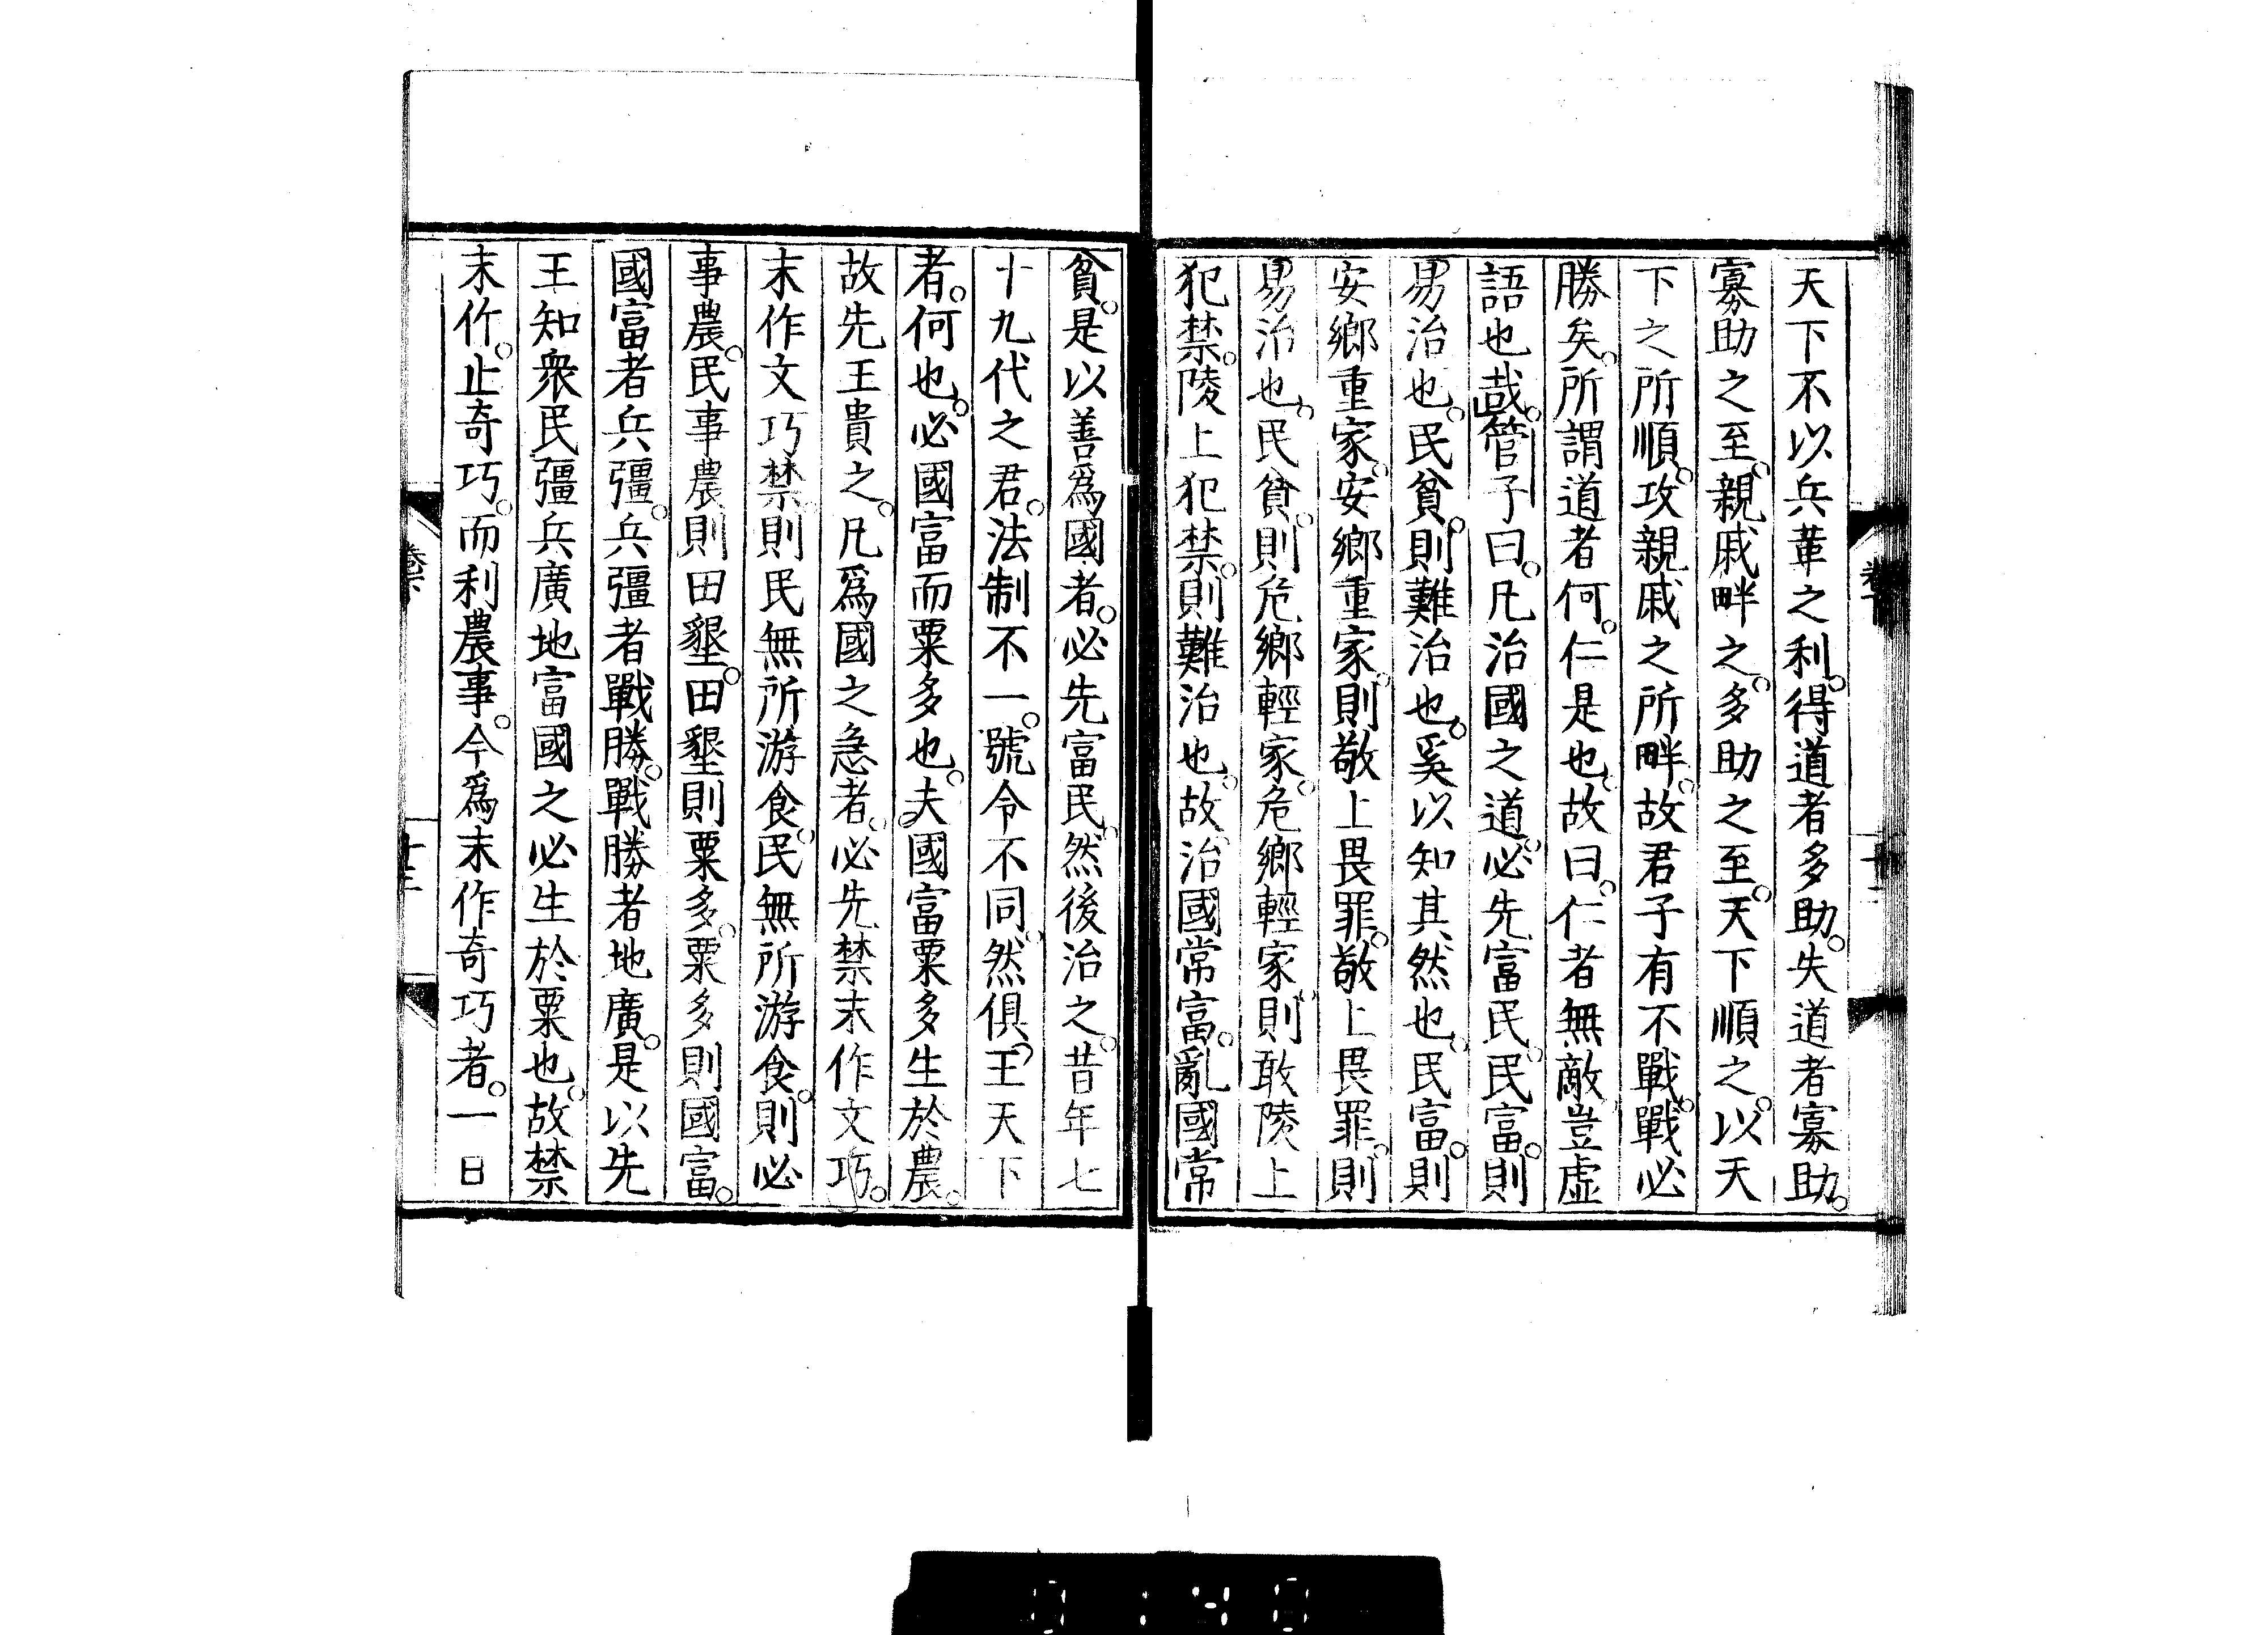 天下不以兵革之利。得道者多助。失道者寡助。
寡助之至。親戚畔之。多助之至。天下順之。以天
下之所順。攻親戚之所畔。故君子有不戰。戰必
勝矣。所謂道者何。仁是也。故曰。仁者無敵豈虛
語也哉。管子曰。凡治國之道。必先富民。民富。則
易治也。民貧。則難治也。奚以知其然也。民富。則
安鄉重家。安鄉重家。則敬上畏罪。敬上畏罪。則
易治也。民貧。則危鄉輕家。危鄉輕家。則敢陵上
犯禁。陵上犯禁。則難治也。故治國常富。亂國常
貧。是以善爲國者。必先富民。然後治之。昔年七
十九代之君。法制不一。號令不同。然俱王天下
者。何也。必國富而粟多也。夫國富粟多生於農。
故先王貴之。凡爲國之急者。必先禁末作文巧。
末作文巧禁。則民無所游食。民無所游食。則必
事農。民事農則田墾。田墾則粟多。粟多則國富。
國富者兵彊。兵彊者戰勝。戰勝者地廣。是以先
王知衆民彊兵廣地富國之必生於粟也。故禁
末作。止奇巧。而利農事。今爲末作奇巧者。一日